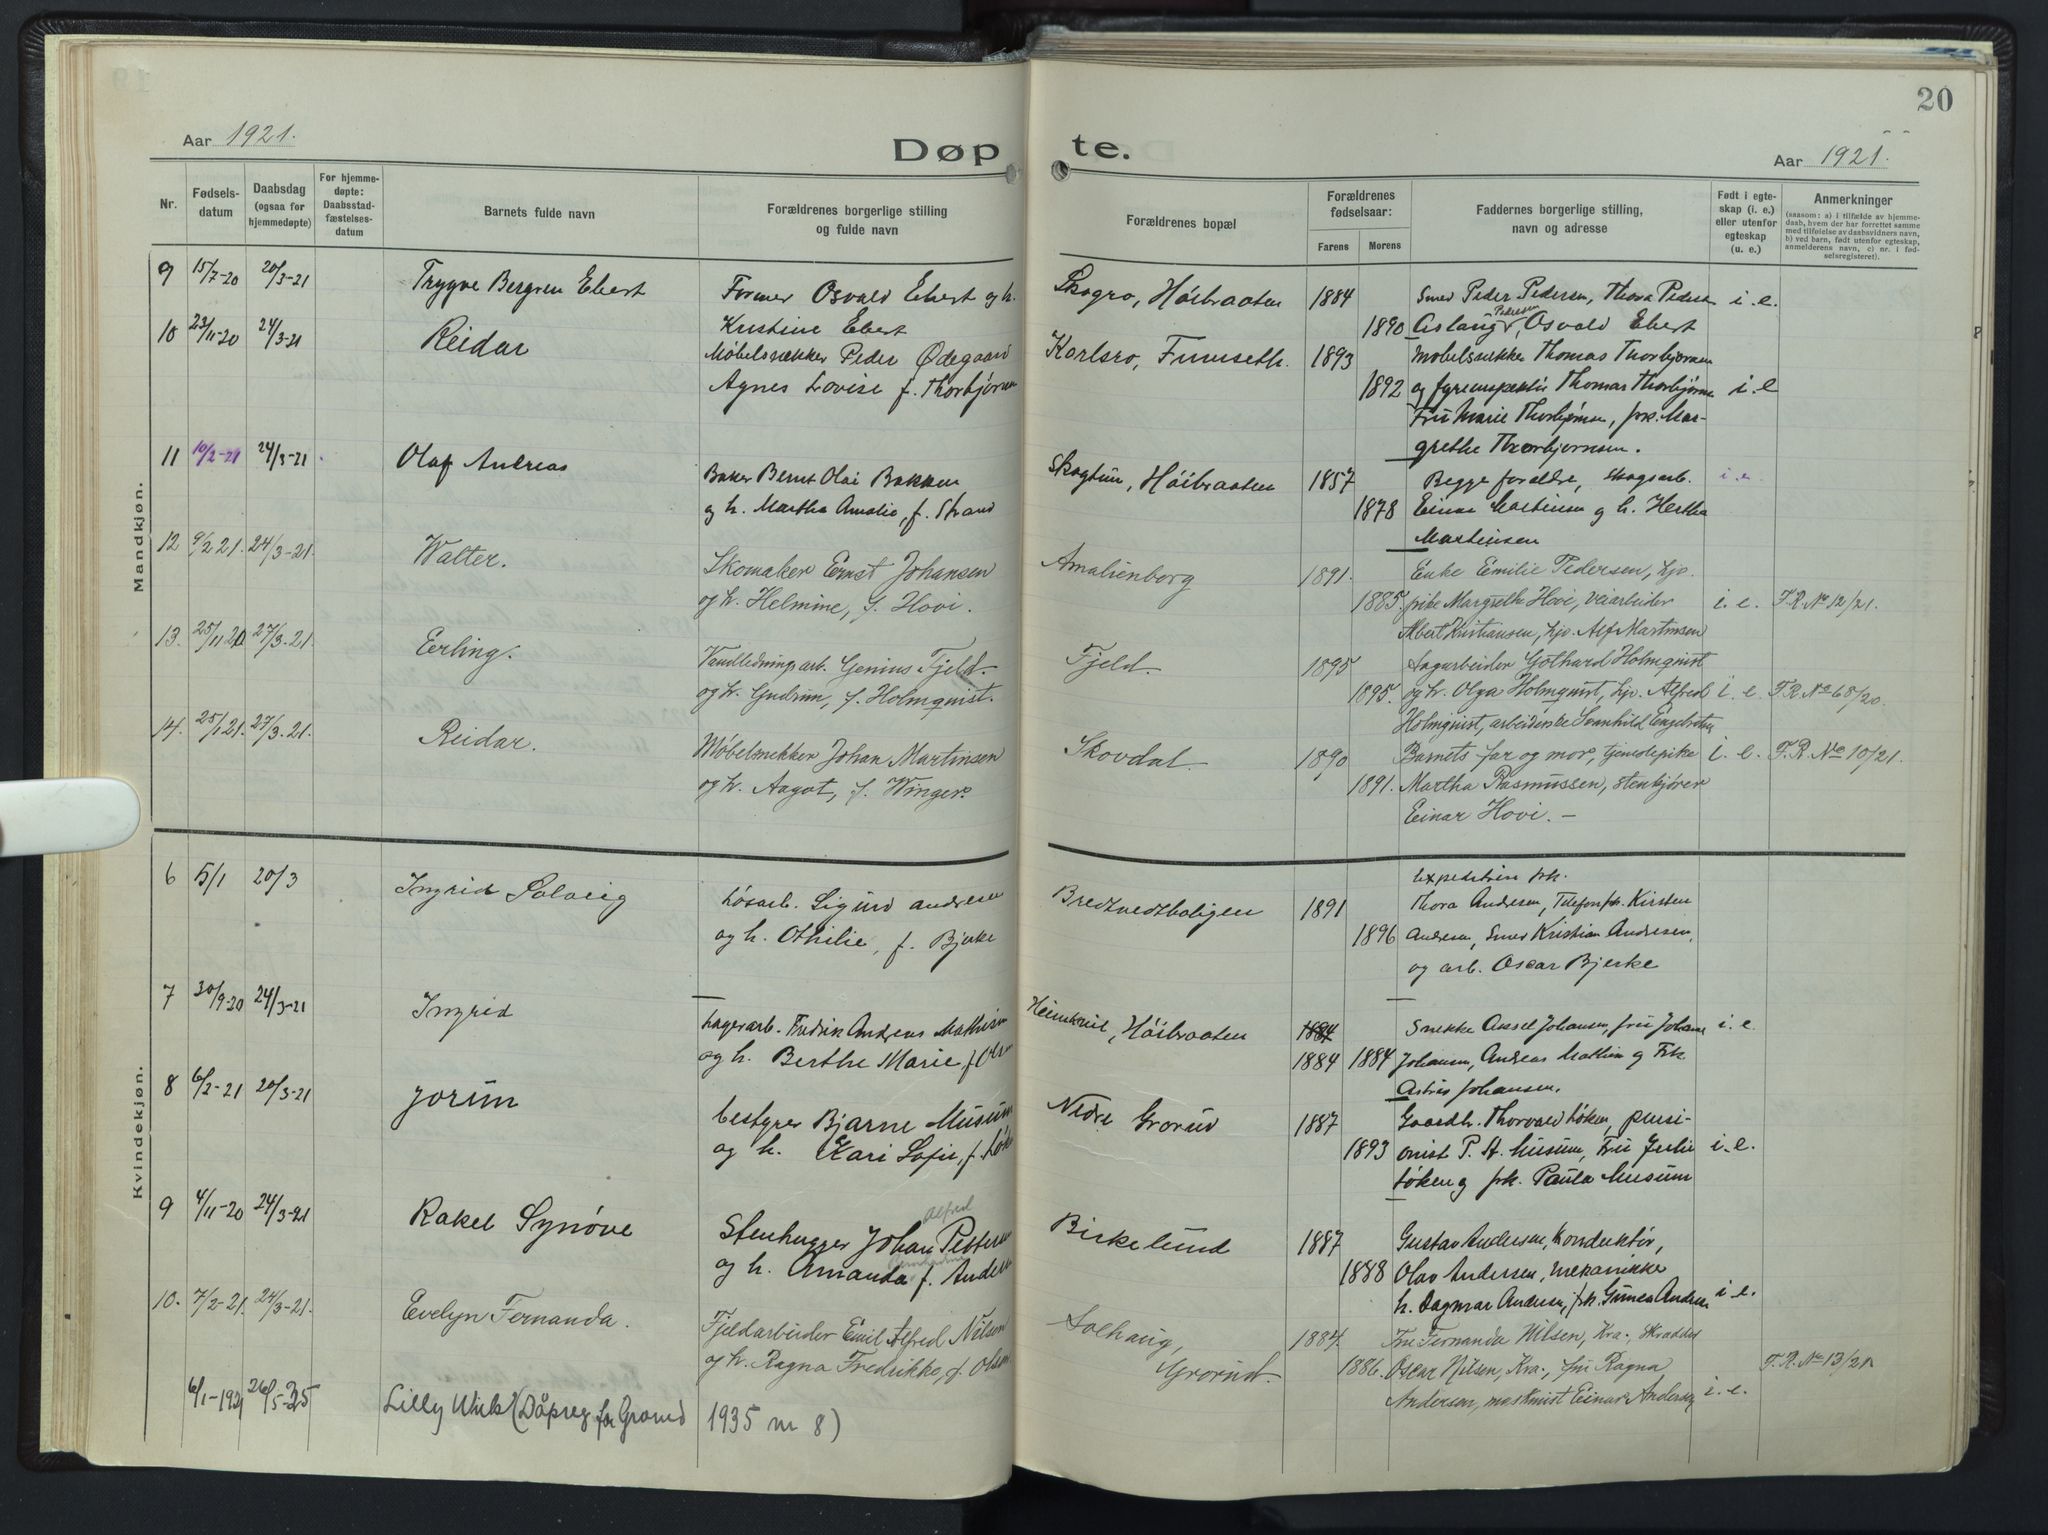 20
Aar 1921.
Døpte.
Aar 1921.
Nr.
Fødselsdatum
Daabsdag (ogsaa for hjemmedøpte)
For hjemmedøpte: Daabsstadfæstelsesdatum
Barnets fulde navn
Forældrenes borgerlige stilling og fulde navn
Forældrenes bopæl
Forældrenes fødselsaar:
Farens
Morens
Faddernes borgerlige stilling, navn og adresse
Født i egteskap (i. e.) eller utenfor egteskap (u. e.)
Anmerkninger
(saasom: a) i tilfælde av hjemmedaab, hvem der har forrettet samme med tilføielse av daabsvidners navn, b) ved barn, født utenfor egteskap, anmelderens navn, c) nr. i fødselsregisteret).
Mandkjøn.
9 15/7-20 20/3-21 Trygve Bergren Ebert Former Osvald Ebert og h. Skogro, Höibraaten 1884 Smed Peder Pedersen, Thora Peders i. e.
Kristine Ebert 1890 Aslaug Pedersen, Osvald Ebert
10 23/11-20 24/3-21 Reidar Møbelsnekker Peder Ødegaard Karlsro, Furuseth. 1893 Møbelsnekker Thomas Thorbjørnsen
Agnes Lovise f. Thorbjörnsen 1892 og fyrinspektör Thomas Thorbjörnsen i. e
Fru Marie Thorbjörnsen, frk. Mar-
grethe Thorbjørnsen.
11 10/2-21 24/3-21 Olaf Andreas Baker Bernt Olai Bakken Skogtun, Höibraaten 1857 Begge foreldre, skogsarb. i. e.
og h. Martha Amalie, f. Strand 1878 Einar Martinsen og h. Hertha
Martinsen
12 9/2 21. 24/3-21. Walter. Skomaker Ernst Johansen Amalienborg 1891. Enke Emilie Pedersen, hjv.
og h. Helmine, f. Hovi. 1885. pike Margrethe Hovi, veiarbeider i. e. F.R. No 12/21.
Albert Kristiansen, hjv. Alf Martinsen
13. 25/11 20 27/3-21. Erling. Vandledningsarb. Genius Fjeld Fjeld. 1895 Sagarbeider Gothard Holmquist
og h. Gudrun, f. Holmquist. 1895. og h. Olga Holmquist, hjv. Alfred i. e. F.R. No 68/20.
Holmquist, arbeiderske Svanhild Engebretsen
14. 25/1 21. 27/3-21. Reidar. Møbelsnekker Johan Martinsen Skovdal. 1890 Barnets far og mor, tjenestepike i. e. F.R. No 10/21.
og h. Aagot, f. Winger. 1891. Martha Rasmussen, stenkjører
Einar Hovi. –
Kvindekjøn.
6 5/1 20/3 Ingrid Solveig Løsarb. Sigurd Andresen Bredtvedtboligen 1891 Expeditrise frk.
Thora Andresen, Telefonfrk. Kirsten
og h. Othilie, f. Bjerke 1896 Andresen, Smed Kristian Andresen,
og arb. Oscar Bjerke
7 30/9-20 24/3-21 Ingrid Lagerarb. Fredrik Andreas Mathisen Höibraaten 1884 Snekke Aksel Johansen, fru Johanne i. e.
og h. Berthe Marie f. Olsen 1884 1884 Johansen, Andreas Mathisen og Frk.
Astrid Johansen.
8 6/2-21 20/3-21 Jorun bestyrer Bjarne Musum Nedre Grorud 1887 Gaardb. Thorvald Løken, pensi-
og h. Kari Sofie, f. Løken 1893 onist P. H. Musum, Fru Julie i. e.
Løken og frk. Paula Musum
9 4/11-20 24/3-21 Rakel Synöve Stenhugger Johan Alfred Pettersen Birkelund 1887 Gustav Andersen, Konduktör,
og h. Amanda f. Andersen 1888 Olav Andersen, mekanikker
h. Dagmar Andersen, frk. Andersen i. e.
10. 7/2-21. 24/3-21. Evelyn Fernanda. Fjeldarbeider Emil Alfred Nilsen Solhaug, 1884. Fru Fernanda Nilsen, Kra., Skrædder
og h. Ragna Fredrikke, f. Olsen Grorud. 1886. Oscar Nilsen, Kra., fru Ragna F.R. No 13/21
Andersen, maskinist Einar Andersen i. e.
6/1-1921 26/5-35 Lilly (Dåpreg for Grorud 1935 nr 8)